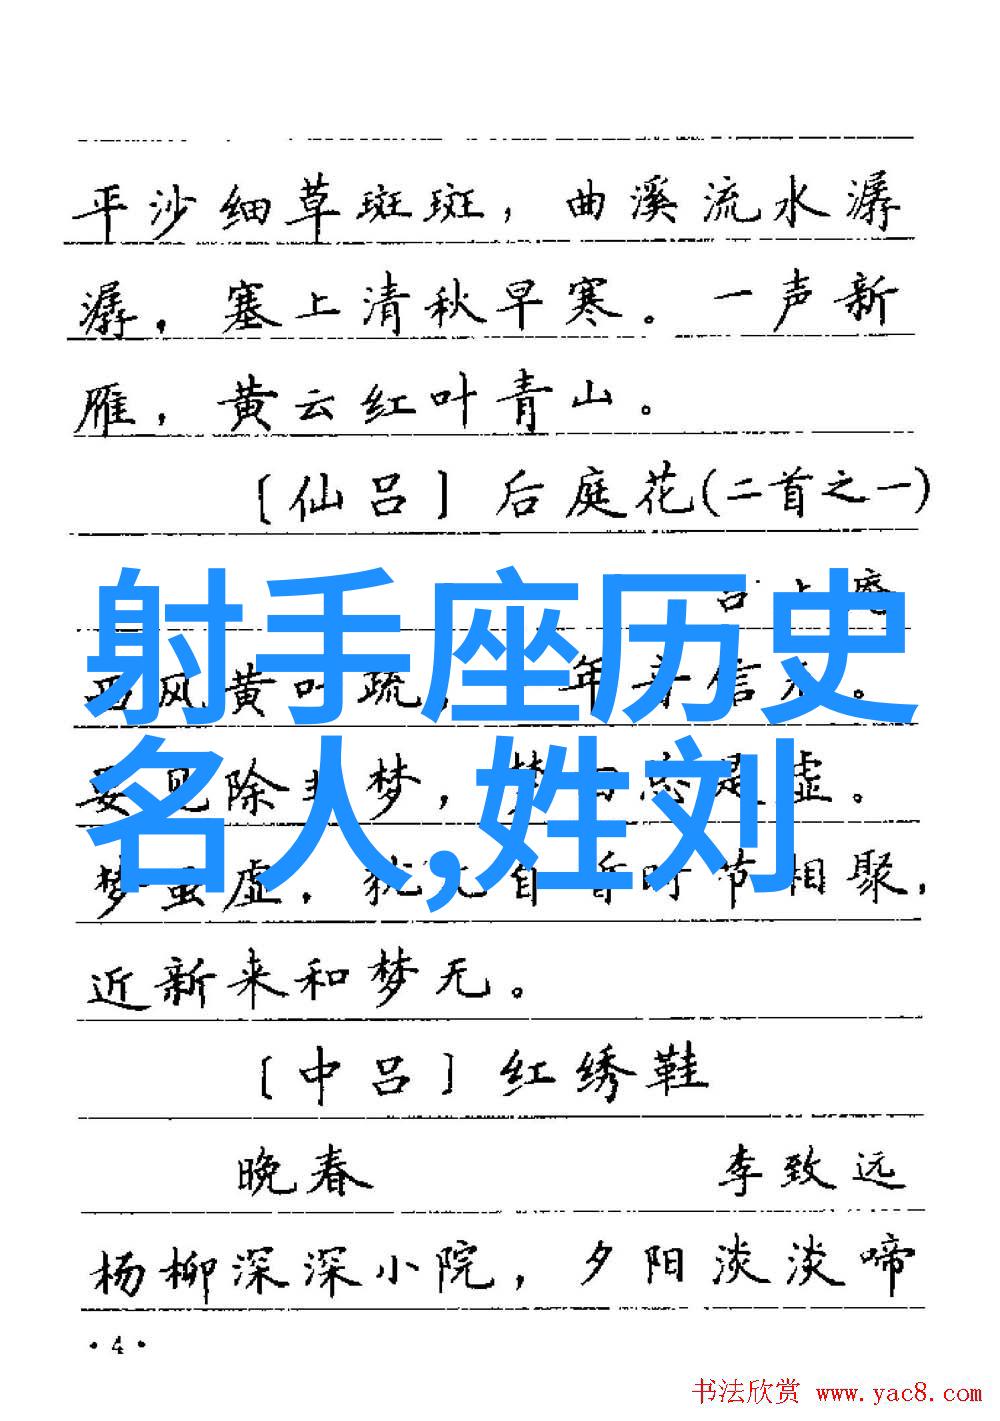 平沙细草斑斑，曲溪流水潺
潺，塞上清秋早寒。一声新
雁，黄云红叶青山。
〔仙吕〕后庭花(二首之一)
射手座历史
名人,姓刘
黄叶疏
年音信
除非梦，梦
虚。
梦虽虚，犹
时节相聚，
近新来和梦无。
〔中吕〕红绣鞋
晚春 李致远
杨柳深深小院，夕阳淡淡啼
·4·
书法欣赏 www.yac8.com